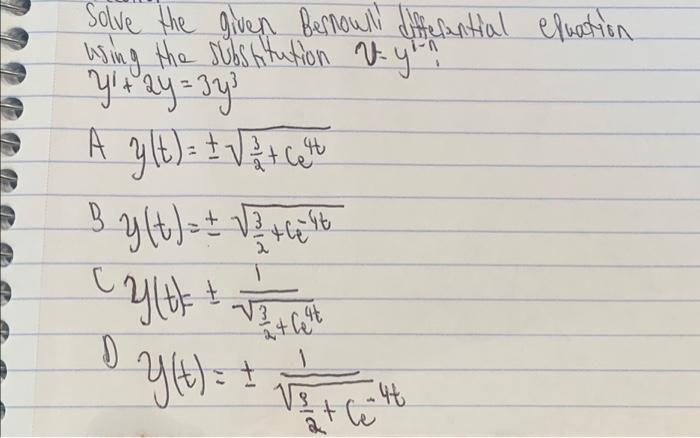 Solve the given Bernoulli differential equation
using the substitution v = y^{1-n}.
y' + 2y = 3y^3
A y(t) = ± √(3/2 + Ce^{4t})
B y(t) = ± √(3/2 + Ce^{-4t})
C y(t) = ± 1/√(3/2 + Ce^{4t})
D y(t) = ± 1/√(3/2 + Ce^{-4t})